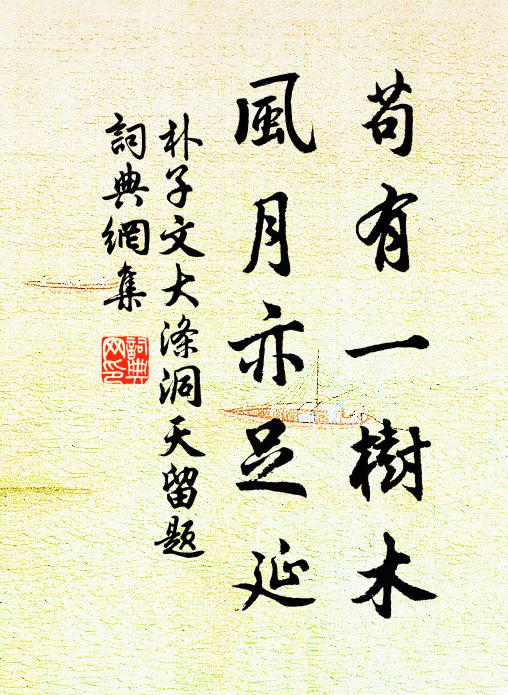 苟有一樹木
風月亦足延
朴子文大滌洞天留题
詞典網集
詞典网印